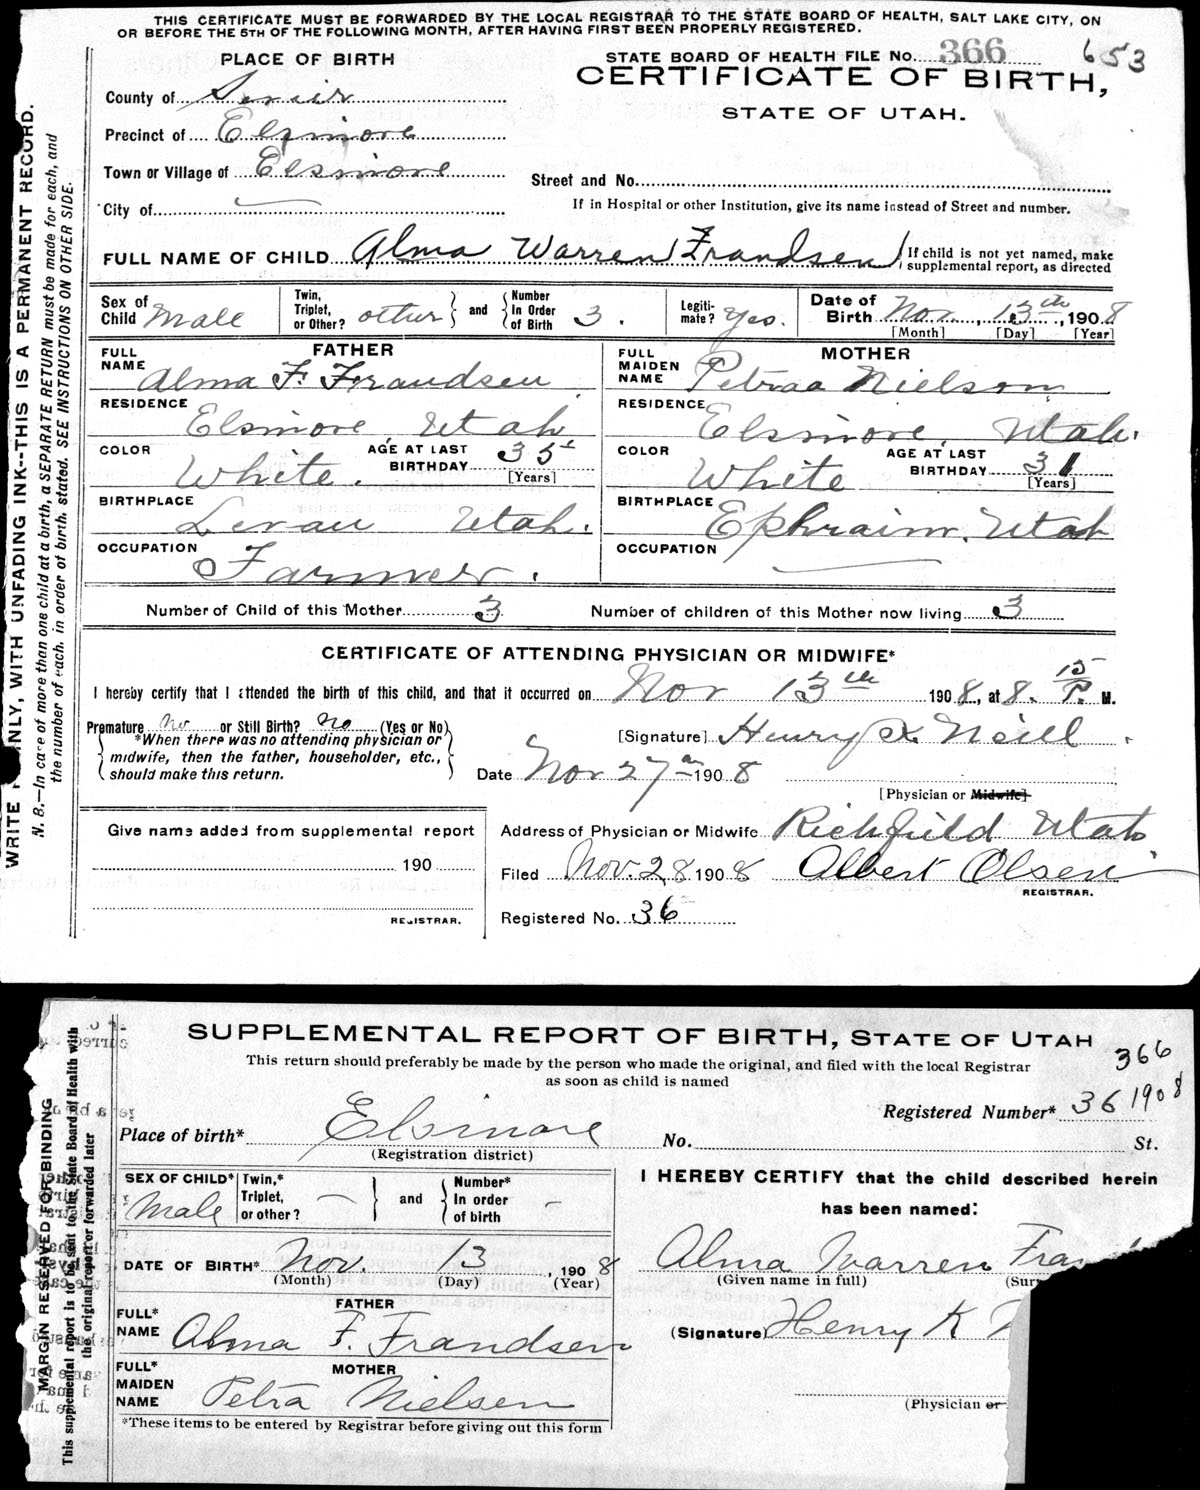 THIS CERTIFICATE MUST BE FORWARDED BY THE LOCAL REGISTRAR TO THE STATE BOARD OF HEALTH, SALT LAKE CITY, ON
OR BEFORE THE 5TH OF THE FOLLOWING MONTH, AFTER HAVING FIRST BEEN PROPERLY REGISTERED.
PLACE OF BIRTH
STATE BOARD OF HEALTH FILE No. 366 653
CERTIFICATE OF BIRTH,
STATE OF UTAH.
County of Sevier
Precinct of Elsinore
Town or Village of Elsinore
Street and No.
City of
If in Hospital or other Institution, give its name instead of Street and number.
FULL NAME OF CHILD Alma Warren Frandsen
If child is not yet named, make supplemental report, as directed
Sex of Child Male Twin, Triplet, or Other? other and Number In Order of Birth 3. Legitimate? Yes. Date of Birth Nov, 13th, 1908
[Month] [Day] [Year]
FATHER MOTHER
FULL NAME Alma F. Frandsen FULL MAIDEN NAME Petraa Nielson
RESIDENCE Elsinore, Utah RESIDENCE Elsinore, Utah.
COLOR White. AGE AT LAST BIRTHDAY 35 [Years] COLOR White AGE AT LAST BIRTHDAY 31 [Years]
BIRTHPLACE Levan Utah. BIRTHPLACE Ephraim, Utah
OCCUPATION Farmer. OCCUPATION
Number of Child of this Mother 3 Number of children of this Mother now living 3
CERTIFICATE OF ATTENDING PHYSICIAN OR MIDWIFE*
I hereby certify that I attended the birth of this child, and that it occurred on Nov 13th 1908, at 8.15 P. M.
Premature no or Still Birth? no (Yes or No)
*When there was no attending physician or midwife, then the father, householder, etc., should make this return.
[Signature] Henry K. Neill
Date Nov 27 1908
[Physician or Midwife]
Give name added from supplemental report
190
REGISTRAR.
Address of Physician or Midwife Richfield Utah
Filed Nov. 28 1908 Albert Olsen
REGISTRAR.
Registered No. 36
WRITE NLY, WITH UNFADING INK--THIS IS A PERMANENT RECORD.
N. B.—In case of more than one child at a birth, a SEPARATE RETURN must be made for each, and
the number of each, in order of birth, stated. SEE INSTRUCTIONS ON OTHER SIDE.
SUPPLEMENTAL REPORT OF BIRTH, STATE OF UTAH
This return should preferably be made by the person who made the original, and filed with the local Registrar
as soon as child is named
366
Registered Number* 36 1908
Place of birth* Elsinore No. St.
(Registration district)
SEX OF CHILD* Male Twin,* Triplet, or other? — and Number* In order of birth -
I HEREBY CERTIFY that the child described herein
has been named:
DATE OF BIRTH* Nov. 13, 1908
(Month) (Day) (Year)
Alma Warren Fran
(Given name in full) (Sur
FATHER
FULL* NAME Alma F. Frandsen
(Signature) Henry K N
MOTHER
FULL* MAIDEN NAME Petra Nielsen
(Physician or
*These items to be entered by Registrar before giving out this form
MARGIN RESERVED FOR BINDING
This supplemental report is to be sent to the State Board of Health with
the original report or forwarded later